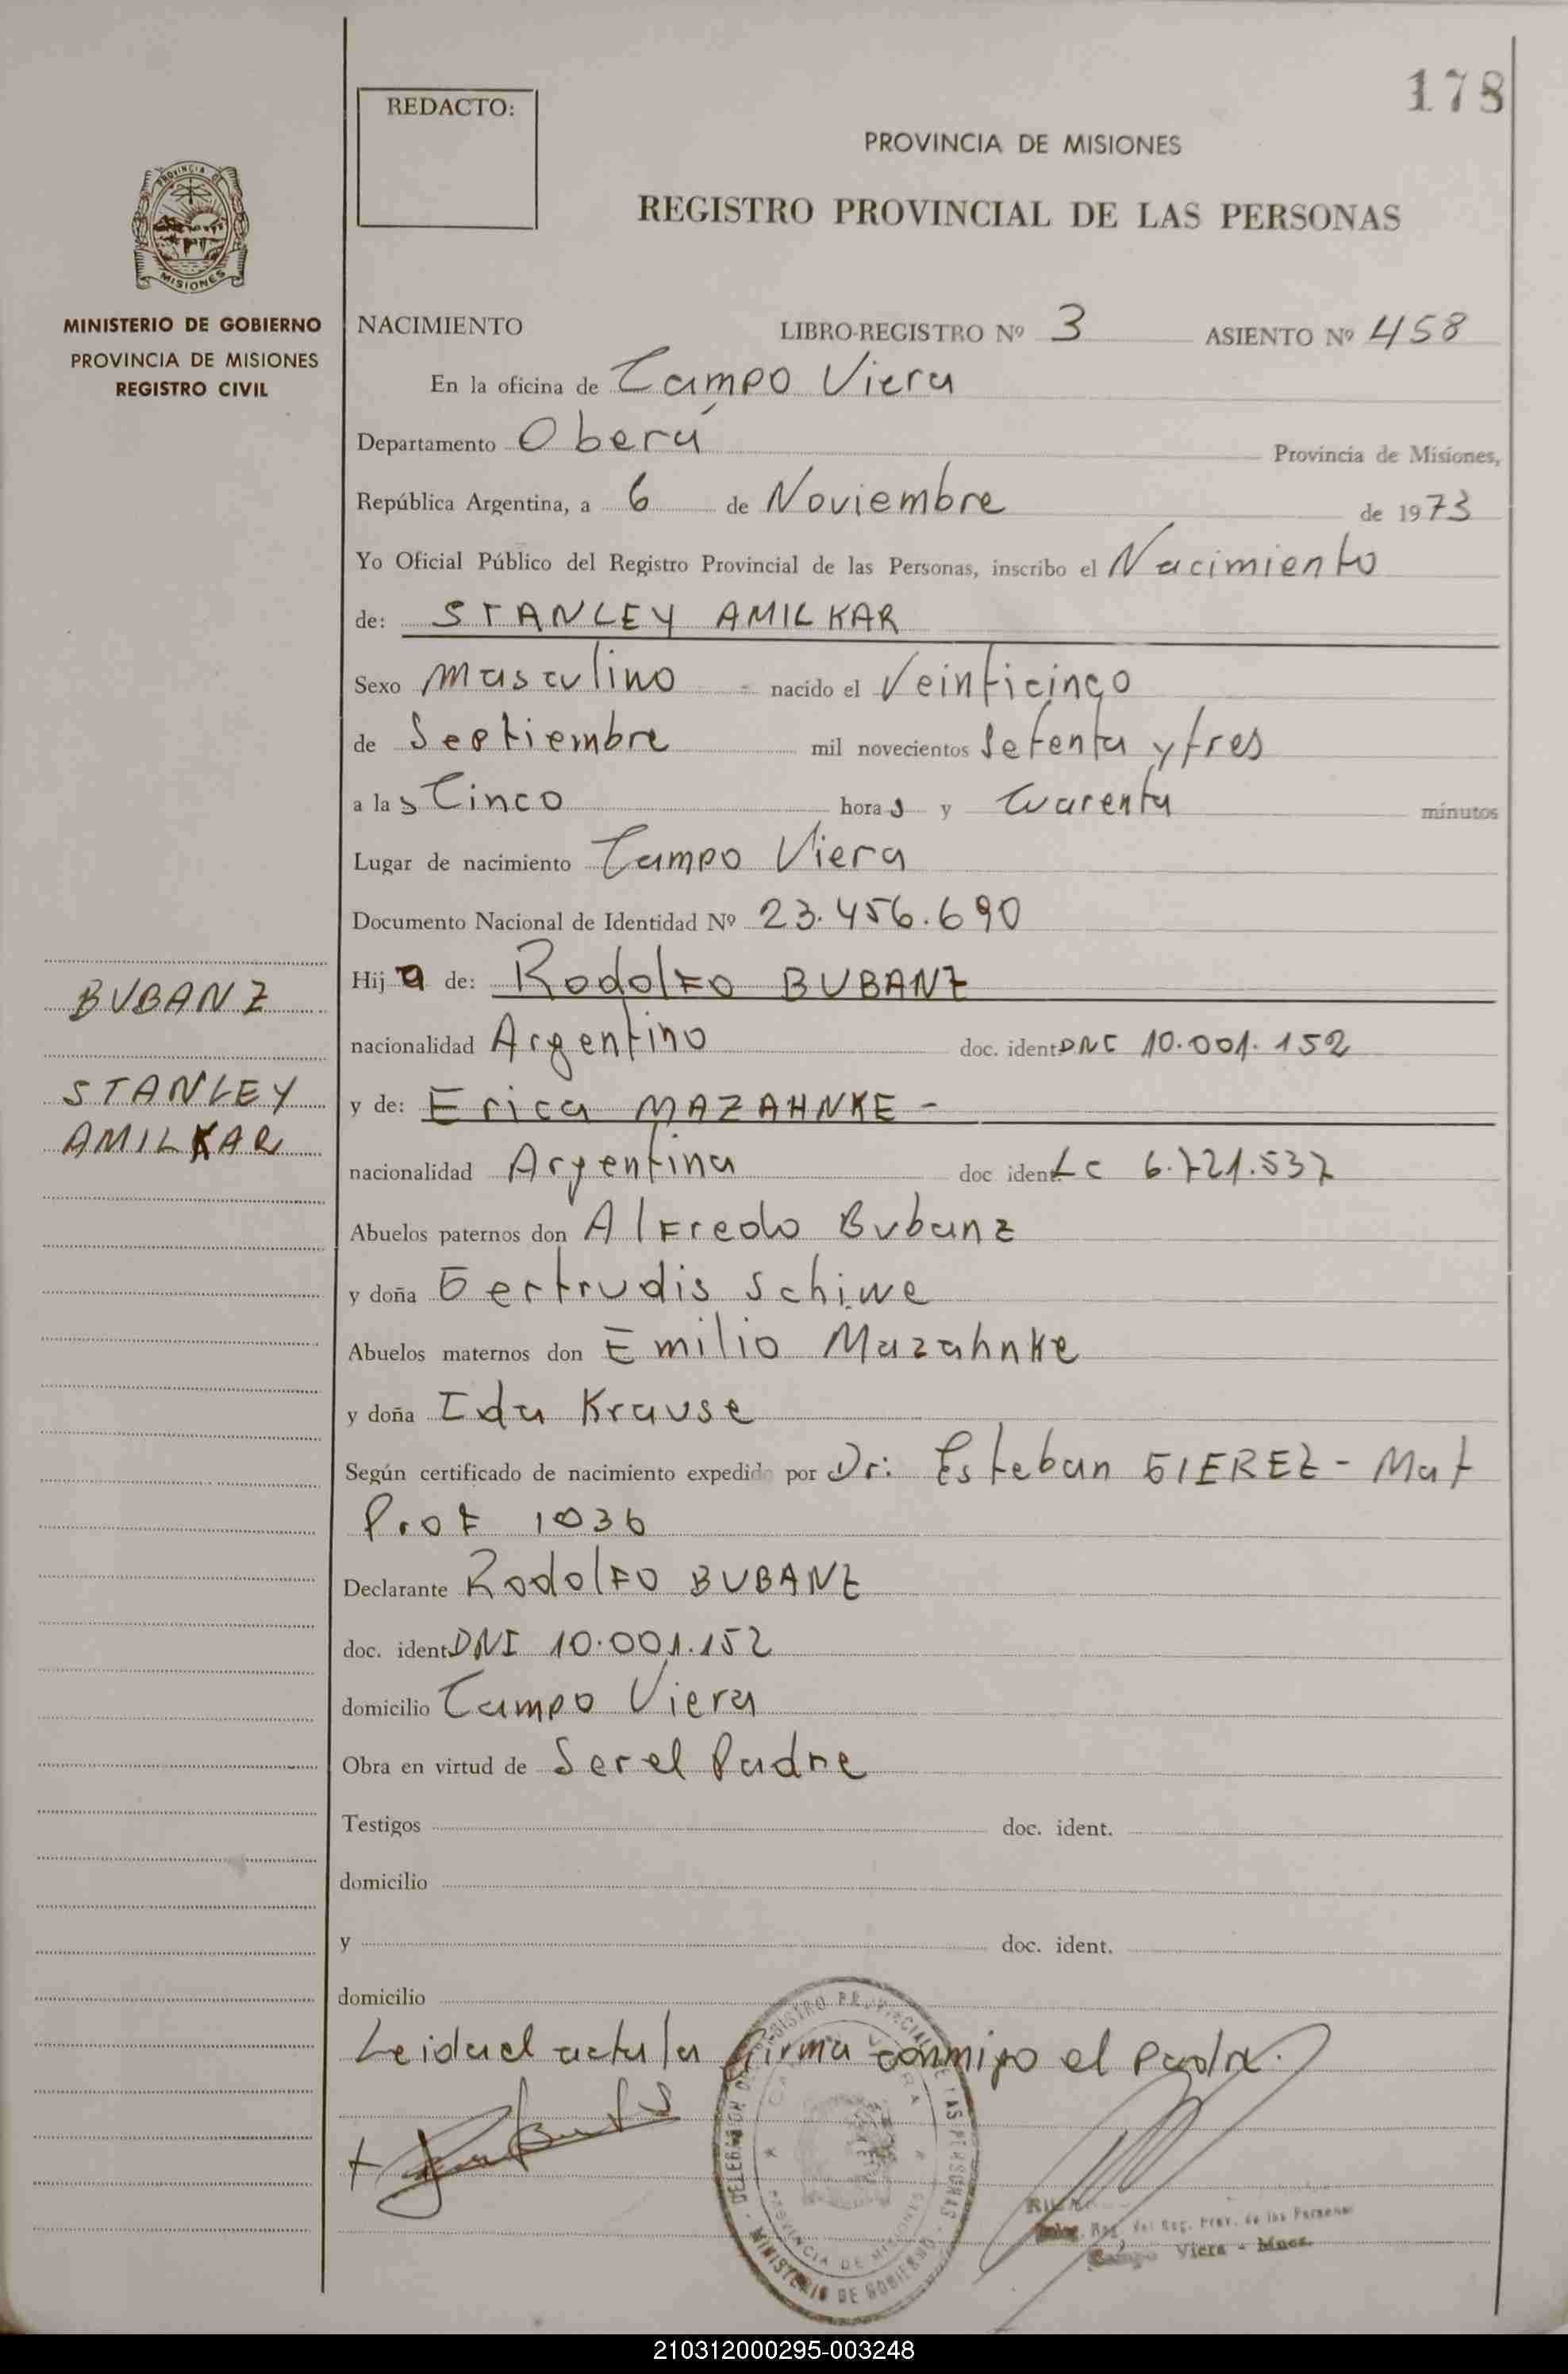 178
REDACTO:
PROVINCIA DE MISIONES
REGISTRO PROVINCIAL DE LAS PERSONAS
PROVINCIA DE
MISIONES
MINISTERIO DE GOBIERNO
PROVINCIA DE MISIONES
REGISTRO CIVIL
NACIMIENTO LIBRO-REGISTRO Nº 3 ASIENTO Nº 458
En la oficina de Campo Viera
Departamento Oberá Provincia de Misiones,
República Argentina, a 6 de Noviembre de 1973
Yo Oficial Público del Registro Provincial de las Personas, inscribo el Nacimiento
de: STANLEY AMILKAR
Sexo masculino - nacido el Veinticinco
de Septiembre mil novecientos Setenta y tres
a las Cinco horas y Cuarenta minutos
Lugar de nacimiento Campo Viera
Documento Nacional de Identidad Nº 23.456.690
BUBANZ
STANLEY
AMILKAR
Hij o de: Rodolfo BUBANZ
nacionalidad Argentino doc. ident. DNI 10.001.152
y de: Erica MAZAHNKE -
nacionalidad Argentina doc ident. LC 6.721.537
Abuelos paternos don Alfredo Bubanz
y doña Gertrudis Schiwe
Abuelos maternos don Emilio Mazahnke
y doña Ida Krause
Según certificado de nacimiento expedido por Dr: Esteban GIEREZ - Mat
Prof 1036
Declarante Rodolfo BUBANZ
doc. ident. DNI 10.001.152
domicilio Campo Viera
Obra en virtud de Ser el Padre
Testigos doc. ident.
domicilio
y doc. ident.
domicilio
Leida el acta la firma conmigo el padre.
DELEGACION DEL REGISTRO PROVINCIAL DE LAS PERSONAS
CAMPO VIERA
PROVINCIA DE MISIONES
MINISTERIO DE GOBIERNO
Deleg. Reg. del Reg. Prov. de las Personas
Campo Viera - Mnes.
210312000295-003248